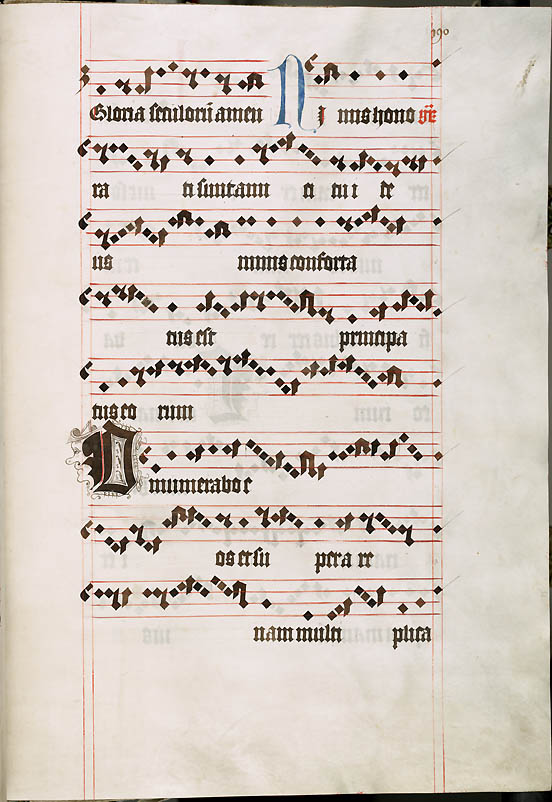 190
Gloria seculorū amen NI mis hono
ra ti sunt ami ci tu i de
us nimis conforta
tus est principa
tus eo rum
Dinumerabo e
os et su per a re
nam multi plica